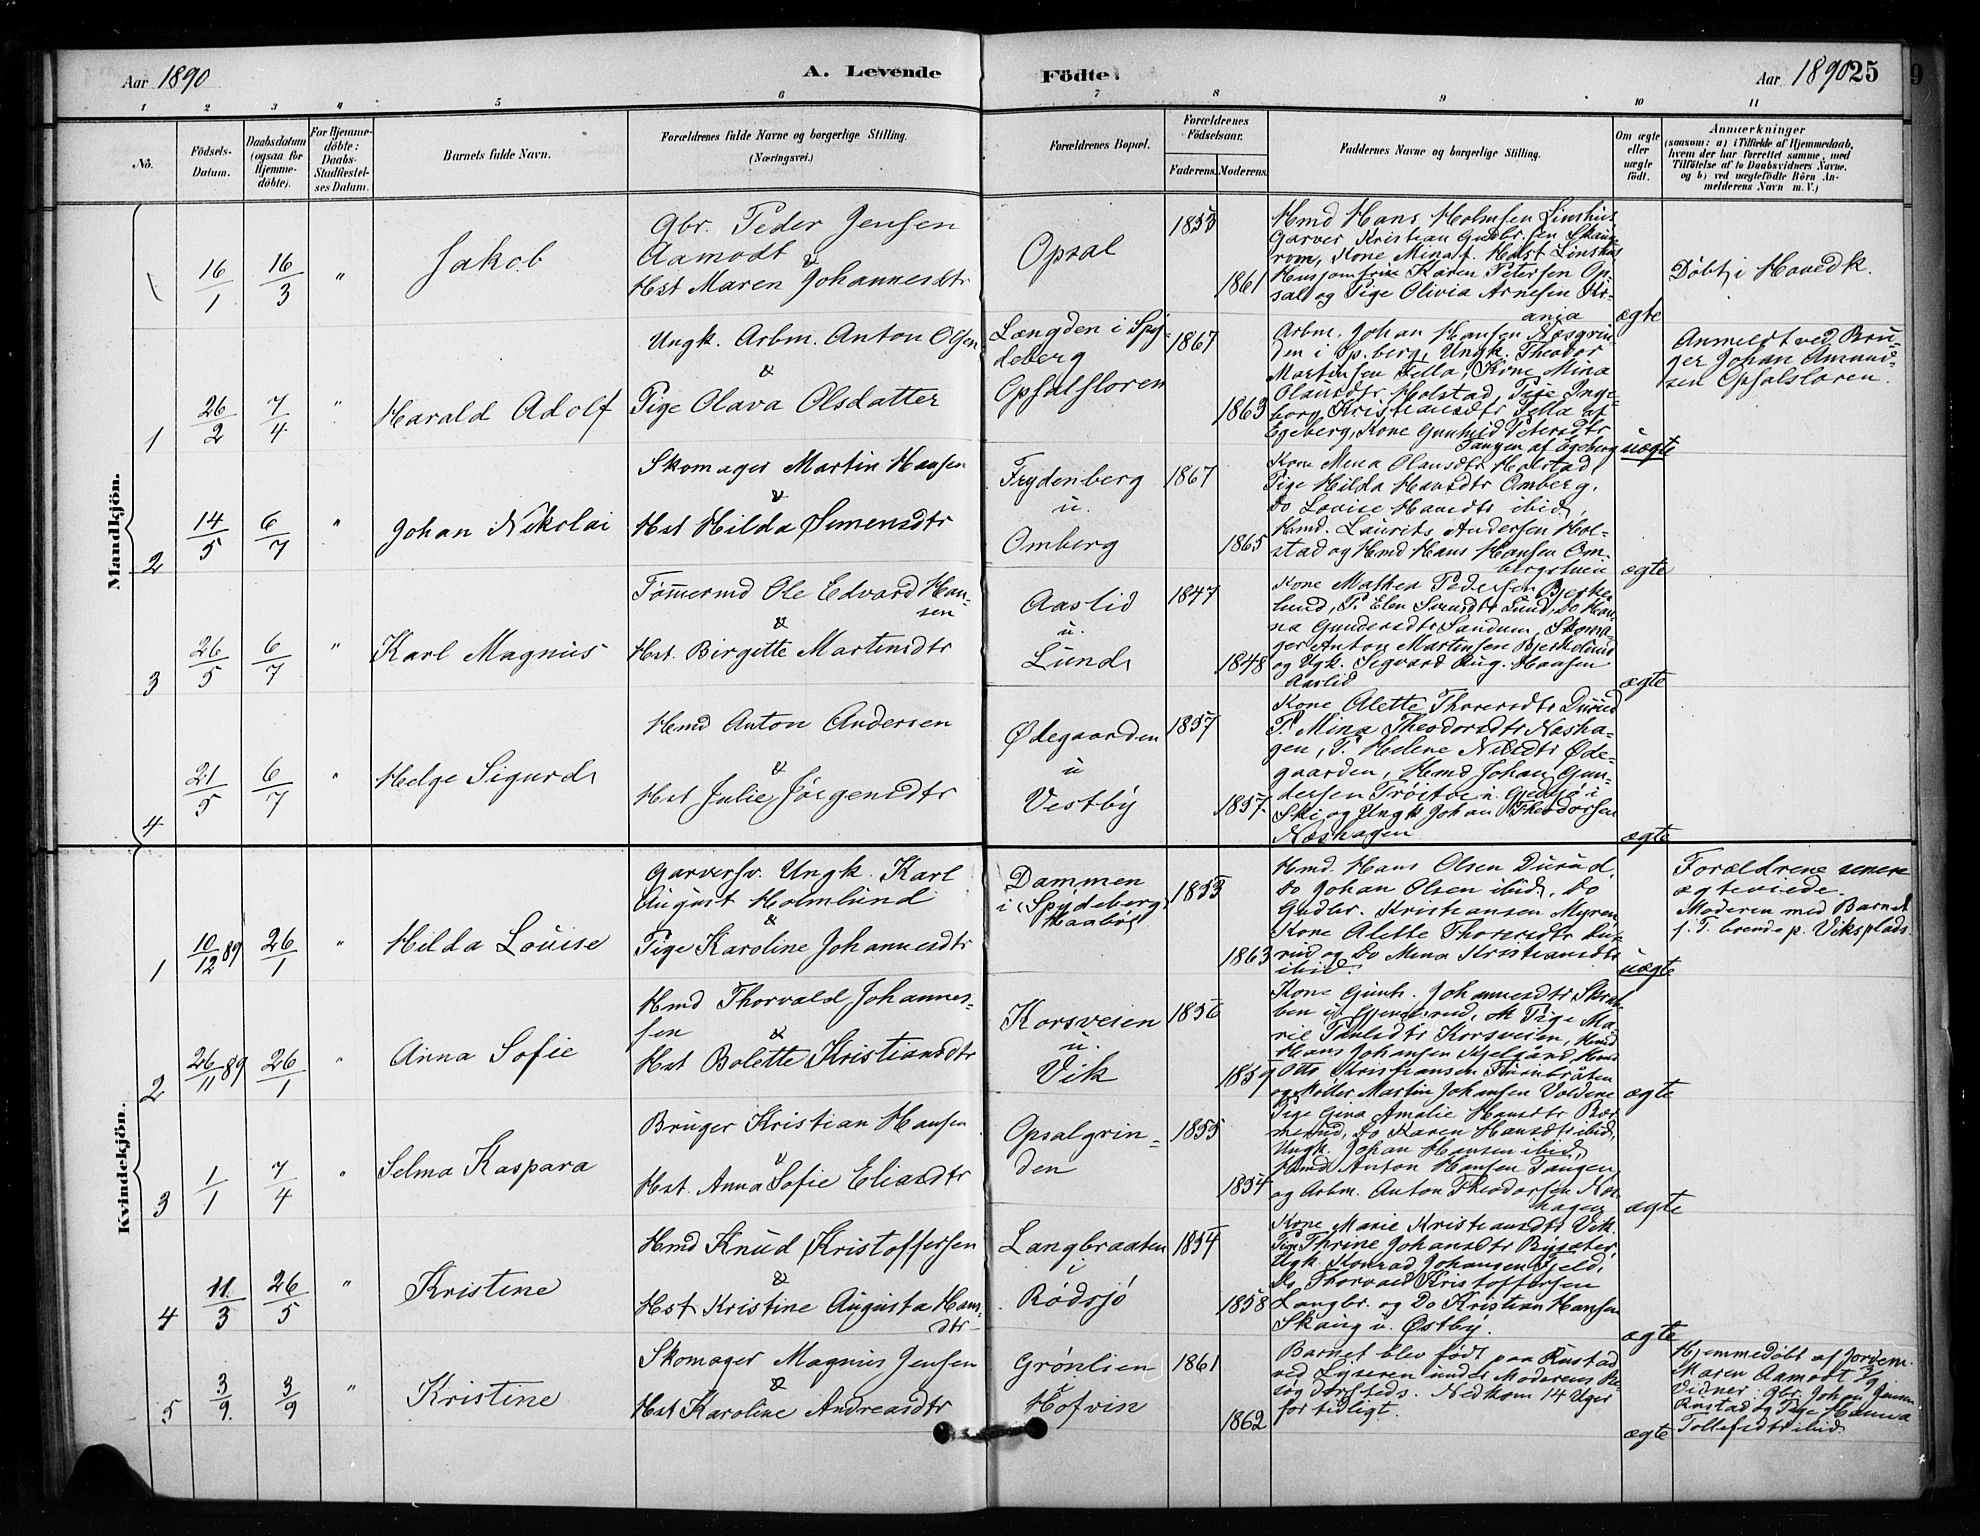 Aar 1890
A. Levende
Födte.
Aar 1890
25
1 2 3 4 5 6 7 8 9 10 11
No.
Födsels-
Datum.
Daabsdatum
(ogsaa for
Hjemme-
döbte).
For Hjemme-
döbte:
Daabs-
Stadfæstel-
ses Datum.
Barnets fulde Navn.
Forældrenes fulde Navne og borgerlige Stilling.
(Næringsvei.)
Forældrenes Bopæl.
Forældrenes
Födselsaar.
Faderens. Moderens.
Faddernes Navne og borgerlige Stilling.
Om ægte
eller
uægte
födt.
Anmærkninger
(saasom: a) i Tilfælde af Hjemmedaab,
hvem der har forrettet samme, med
Tilföielse af to Daabsvidners Navne,
og b) ved uægtefödte Börn An-
melderens Navn m. V.)
Mandkjön.
16/1
16/3
"
Jakob
Gbr. Peder Jensen
Aamodt &
Hst Maren Johannesdtr
Opsal
1853
1861
Hmd Hans Holmsen Linshus
Garver Kristian Gudbr.sen Skau-
rom, Kone Mina f. Holst Linshus
Husjomfru Karen Petersen Op-
sal og Pige Olivia Arnesen Kr-
ania
ægte
Döbt i Hovedk.
1
26/2
7/4
"
Harald Adolf
Ungk. Arbm. Anton Olsen
&
Pige Olava Olsdatter
Længden i Spy-
deberg
Opsalsloren
1867
1863
Arbm. Johan Hansen Næsgrin-
den i Sp.berg, Ungk. Theodor
Martinsen Fella, Kone Mina
Olausdtr. Holstad, Pige Inge-
borg Kristiansdtr Fella af
Egeberg, Kone Gunhild Petersdtr
Tangen af Egeberg
uægte
Anmeldt ved Bru-
ger Johan Amund-
sen Opsalsloren.
2
14/5
6/7
"
Johan Nikolai
Skomager Martin Hansen
&
Hst Hilda Simensdtr
Frydenberg
u.
Omberg
1867
1865
Kone Mina Olausdtr Holstad,
Pige Hilda Hansdtr Omberg,
Do Lovise Hansdtr ibid,
Hmd. Laurits Andersen Hol-
stad og Hmd Hans Hansen Om-
bergstuen
ægte
3
26/5
6/7
"
Karl Magnus
Tömermd Ole Edvard Han-
sen
&
Hst. Birgitte Martinsdtr
Aaslid
u.
Lund
1847
1848
Kone Mathea Pedersen Bjerke-
lund, P. Elen Lund, Do Han-
na Gundersdtr Sandum, Skoma-
ger Anton Martinsen Bjerkelund
og Ugk. Sigvard Aug. Hansen
Aaslid
ægte
4
21/5
6/7
"
Helge Sigurd
Hmd Anton Andersen
&
Hst Julie Jörgensdtr
Ødegaarden
u
Vestby
1857
1857.
Kone Alette Thoresdtr Durud
P. Mina Theodorsdtr Næsha-
gen, P. Helene Nilsdtr Øde-
gaarden, Hmd Johan Gun-
dersen u. Gjedsjö i
Ski og Ungk Johan Theodorsen
Næshagen
ægte
Kvindekjön.
1
10/12 89
26/1
"
Hilda Louise
Garversv. Ungk. Karl
August Holmlund
&
Pige Karoline Johannesdtr
Dammen
i Spydeberg
Haaböl
1853
1863
Hmd. Hans Olsen Durud,
Do Johan Olsen ibid, Do
Gudbr. Kristiansen Myren
Kone Alette Thoresdtr Du-
rud og Do Mina Kristiansdtr
ibid.
uægte
Forældrene senere
ægteviede.
Moderen med Barnet
f. T. boende p. Viksplads.
2
26/11 89
26/1
"
Anna Sofie
Hmd Thorvald Johannes-
sen
&
Hst Bolette Kristiansdtr
Korsveien
u.
Vik
1856
1859
Kone Gunh. Johannesdtr
Pige Ma-
rie Paulsdtr Korsveien, Hmd
Hans Johansen Hmd
Otto Kristiansen
og Möller Martin Johansen Voldene
ægte
3
1/1
7/4
"
Selma Kaspara
Bruger Kristian Hansen
&
Hst. Anna Sofie Eliasdtr
Opsalgrin-
den
1855
1854
Pige Gina Amalie Hansdtr
Do Karen Hansdtr ibid,
Ungk. Johan Hansen ibid,
Hmd Anton Hansen Tangen
og Arbm. Anton Theodorsen Næs-
hagen
ægte
4
11/3
26/5
"
Kristine
Hmd Knud Kristoffersen
&
Hst Kristine Augusta Hans-
dtr
Langbraaten
i
Rödsjö
1854
1858
Kone Marie Kristiansdtr Vik
Pige Thrine Johansdtr Byseter,
Ugk. Konrad Johansen Fjeld,
Do Thorvald Kristoffersen
Langbr. og Do Kristian Hansen
Skaug u. Østby.
ægte
5
3/9.
3/9
"
Kristine
Skomager Magnus Jensen
&
Hst Karoline Andreasdtr
Grönlien
i
Hofvin
1861
1862
Barnet blev födt paa Rustad
ved Lyseren under Moderens Be-
sög dersteds. Nedkom 14 Uger
for tidligt.
ægte
Hjemmedöbt af Jordem.
Maren Aamodt 3/9
Vidner: Gbr. Johan Jensen
Rustad og Pige Hanna
Tollefsdtr ibid.